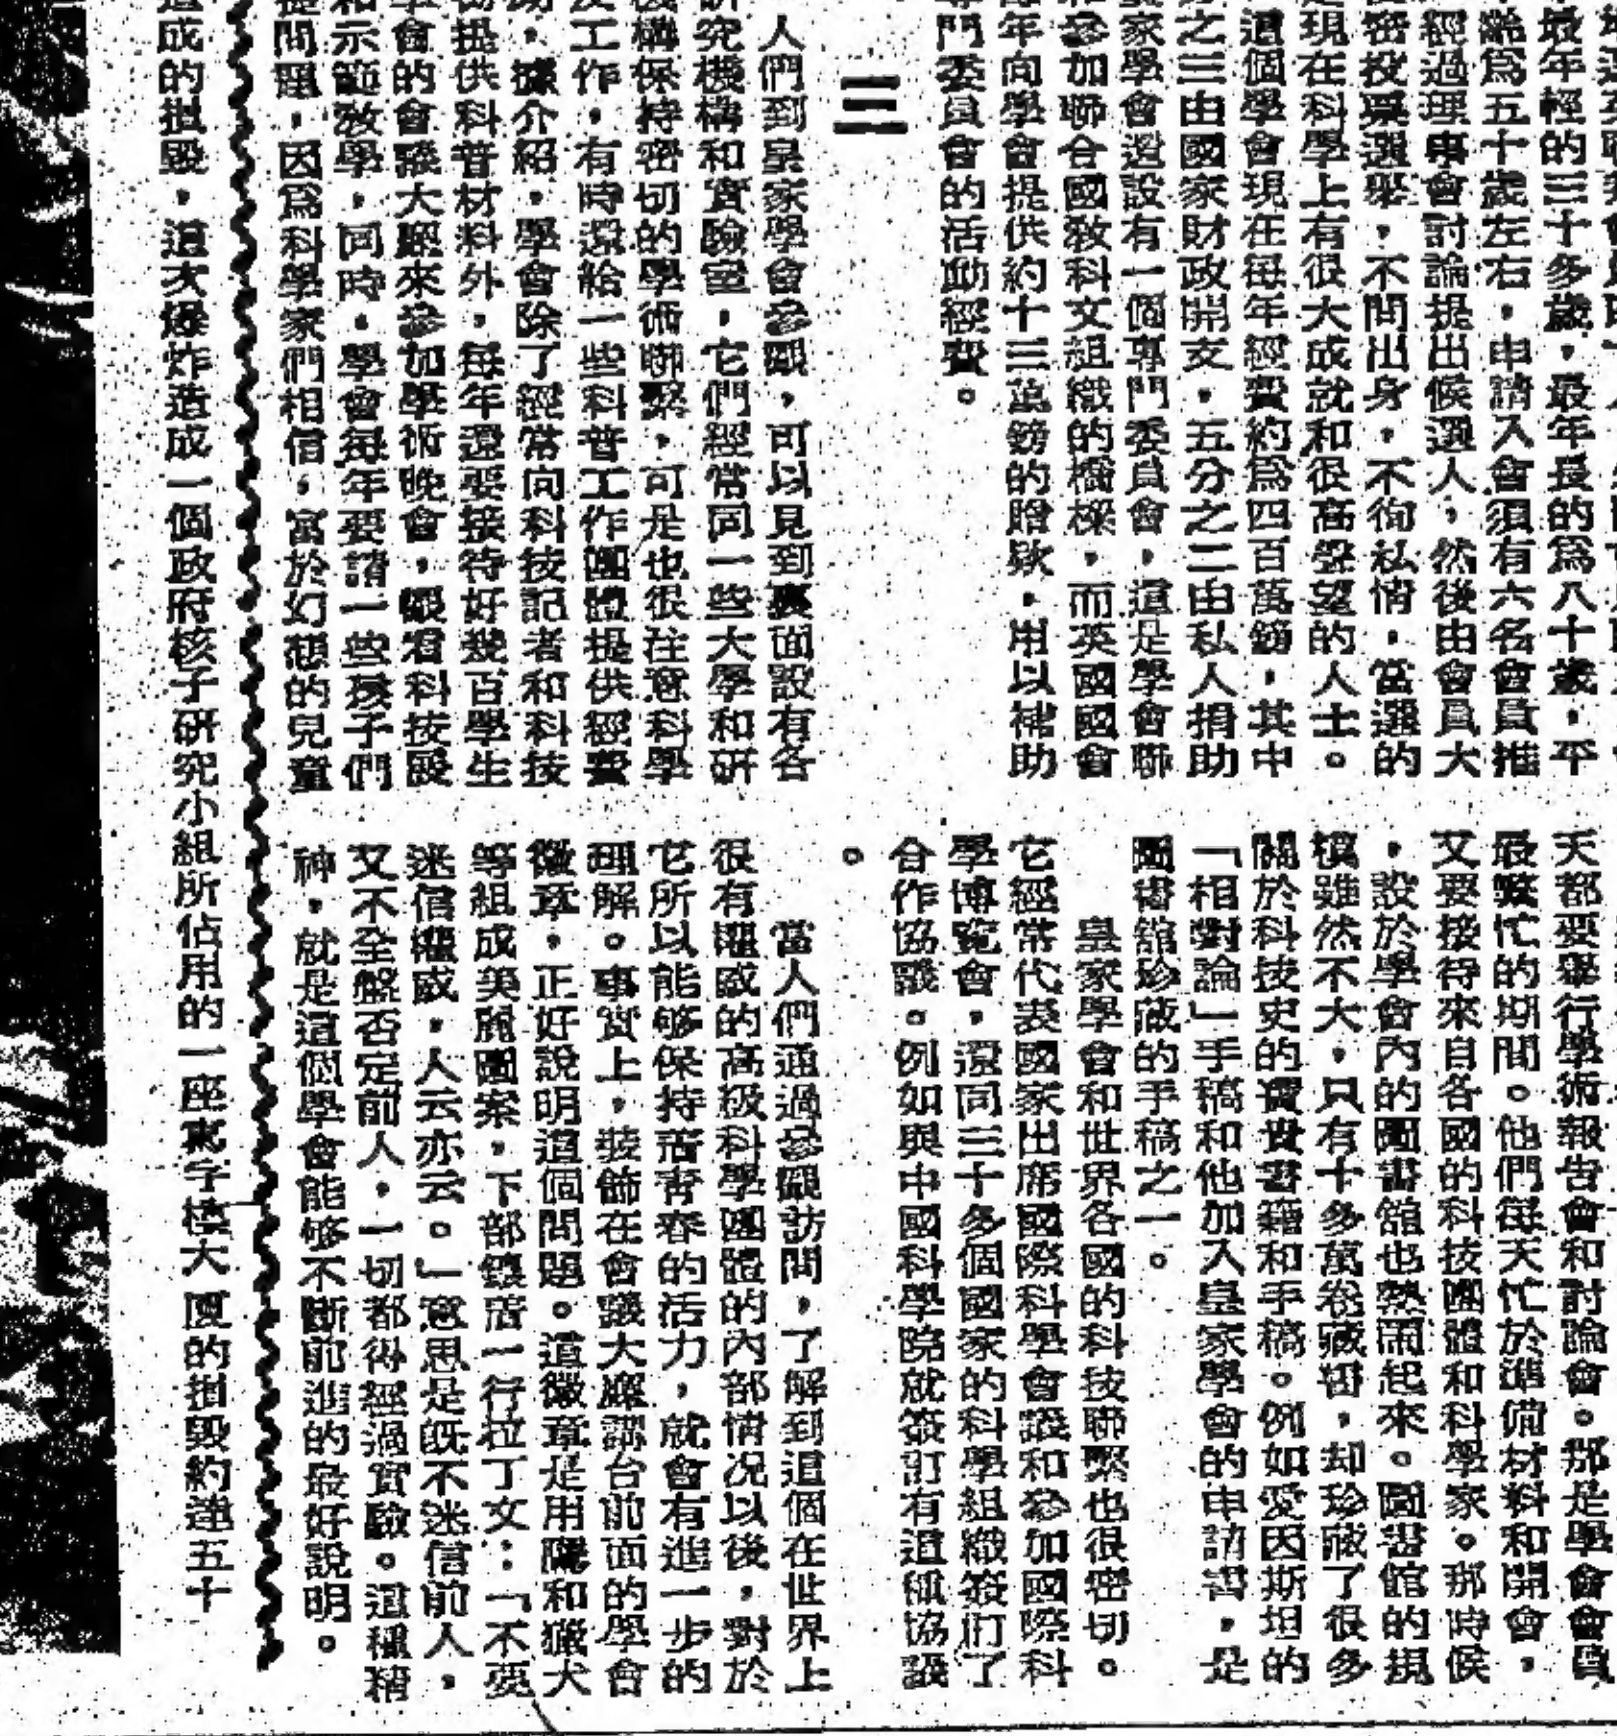 最年輕的三十多歲，最年長的爲八十歲，平
齡爲五十歲左右，申請入會須有六名會員推
經過理事會討論提出候選人，然後由會員大
密投票選舉，不問出身，不徇私情，當選的
現在科學上有很大成就和很高聲望的人士。
這個學會現在每年經費約爲四百萬鎊，其中
之三由國家財政開支，五分之二由私人捐助
家學會還設有一個專門委員會，這是學會聯
參加聯合國教科文組織的橋樑，而英國國會
年向學會提供約十三萬鎊的贈欵，用以補助
門委員會的活動經費。
三
人們到皇家學會參觀，可以見到裏面設有各
究機構和實驗室，它們經常同一些大學和研
機構保持密切的學術聯繫，可是也很注意科學
工作，有時還給一些科普工作團體提供經費
，據介紹，學會除了經常向科技記者和科技
提供科普材料外，每年還要接待好幾百學生
會的會議大廳來參加學術晚會，觀看科技設
和示範教學，同時，學會每年要請一些孩子們
提問題，因爲科學家們相信，富於幻想的兒童
天都要舉行學術報告會和討論會。那是學會會員
最繁忙的期間。他們每天忙於準備材料和開會，
又要接待來自各國的科技團體和科學家。那時候
，設於學會內的圖書館也熱鬧起來。圖書館的規
模雖然不大，只有十多萬卷藏書，却珍藏了很多
關於科技史的寶貴書籍和手稿。例如愛因斯坦的
「相對論」手稿和他加入皇家學會的申請書，是
圖書館珍藏的手稿之一。
皇家學會和世界各國的科技聯繫也很密切。
它經常代表國家出席國際科學會議和參加國際科
學博覽會，還同三十多個國家的科學組織簽訂了
合作協議。例如與中國科學院就簽訂有這種協議
。
當人們通過參觀訪問，了解到這個在世界上
很有權威的高級科學團體的內部情况以後，對於
它所以能够保持着青春的活力，就會有進一步的
理解。事實上，裝飾在會議大廳講台前面的學會
徽章，正好說明這個問題。這徽章是用鷹和獵犬
等組成美麗圖案，下部鑲着一行拉丁文：「不要
迷信權威，人云亦云。」意思是既不迷信前人，
又不全盤否定前人，一切都得經過實驗。這種精
神，就是這個學會能够不斷前進的最好說明。
造成的損毀，這次爆炸造成一個政府核子研究小組所佔用的一座寫字樓大厦的損毀約達五十